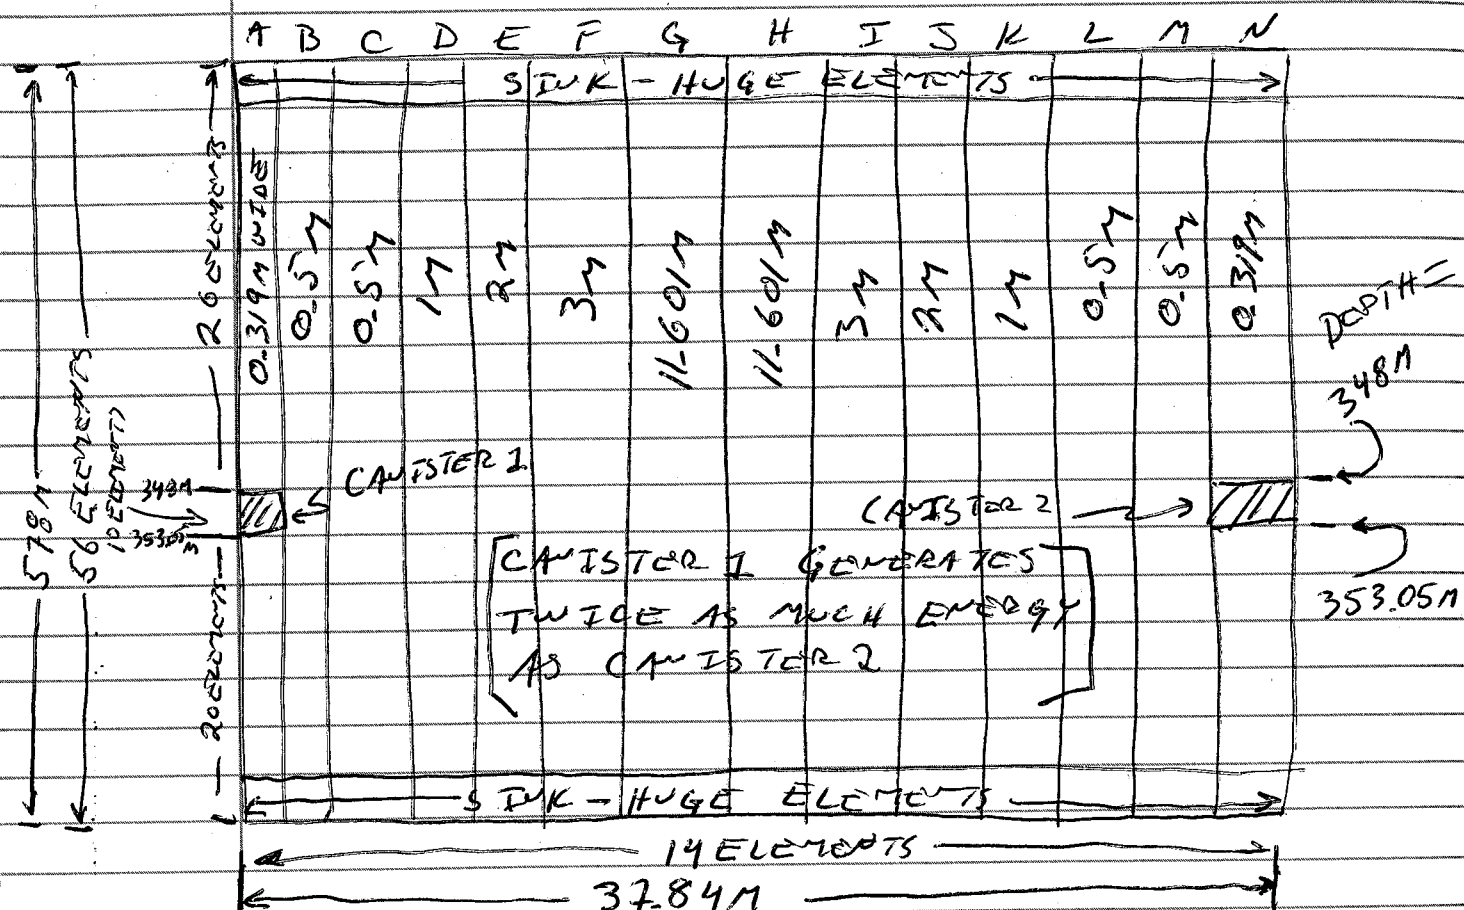 A B C D E F G H I J K L M N
SINK - HUGE ELEMENTS
578 M
56 ELEMENTS
26 ELEMENTS
10 ELEMENTS
20 ELEMENTS
0.319 M WIDE
0.5 M
0.5 M
1 M
2 M
3 M
11.601 M
11.601 M
3 M
2 M
1 M
0.5 M
0.5 M
0.319 M
DEPTH =
348 M
353.05 M
348 M
353.05 M
CANISTER 1
CANISTER 2
[CANISTER 1 GENERATES
TWICE AS MUCH ENERGY
AS CANISTER 2]
SINK - HUGE ELEMENTS
14 ELEMENTS
37.84 M